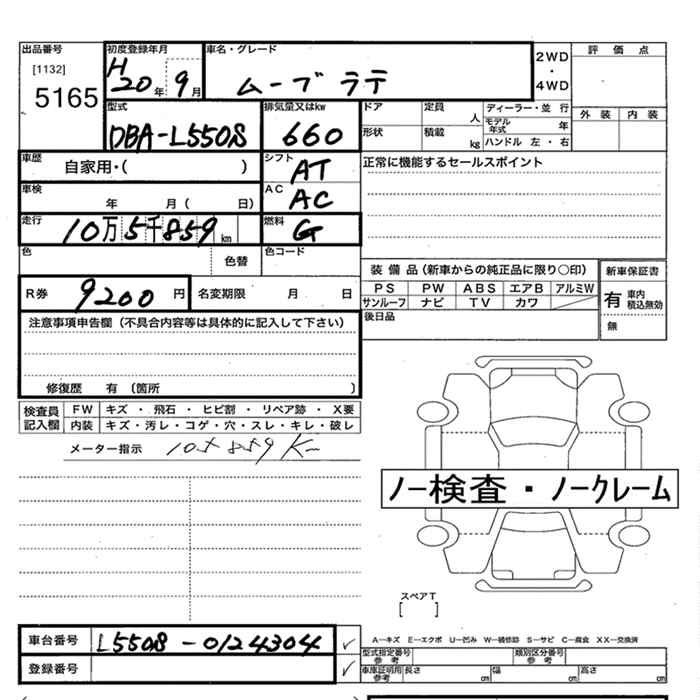 出品番号 初度登録年月 車名・グレード 評価点
[1132] 5165 H20年9月 ムーブ ラテ 2WD・4WD
型式 排気量又はkw ドア 定員 人 ディーラー・並行 外装 内装
DBA-L550S 660 形状 積載 kg モデル年式 年 ハンドル 左・右
車歴 自家用・( ) シフト AT 正常に機能するセールスポイント
車検 年 月 ( 日) AC AC
走行 10万5千859km 燃料 G
色 色替 色コード
装備品 (新車からの純正品に限り〇印) 新車保証書
R券 9200円 名変期限 月 日 PS PW ABS エアB アルミW 有 車内積込無効
サンルーフ ナビ TV カワ
注意事項申告欄 (不具合内容等は具体的に記入して下さい) 後日品 無
修復歴 有 (箇所 )
検査員記入欄 FW キズ・飛石・ヒビ割・リペア跡・X要
内装 キズ・汚レ・コゲ・穴・スレ・キレ・破レ
メーター指示 105859K
ノー検査・ノークレーム
スペアT
[ ]
車台番号 L550S-0124304 ✓ A-キズ E-エクボ U-凹み W-補修跡 S-サビ C-腐食 XX-交換済
型式指定番号 参考 類別区分番号 参考
登録番号 ✓ 車庫証明用参考 長さ cm 幅 cm 高さ cm